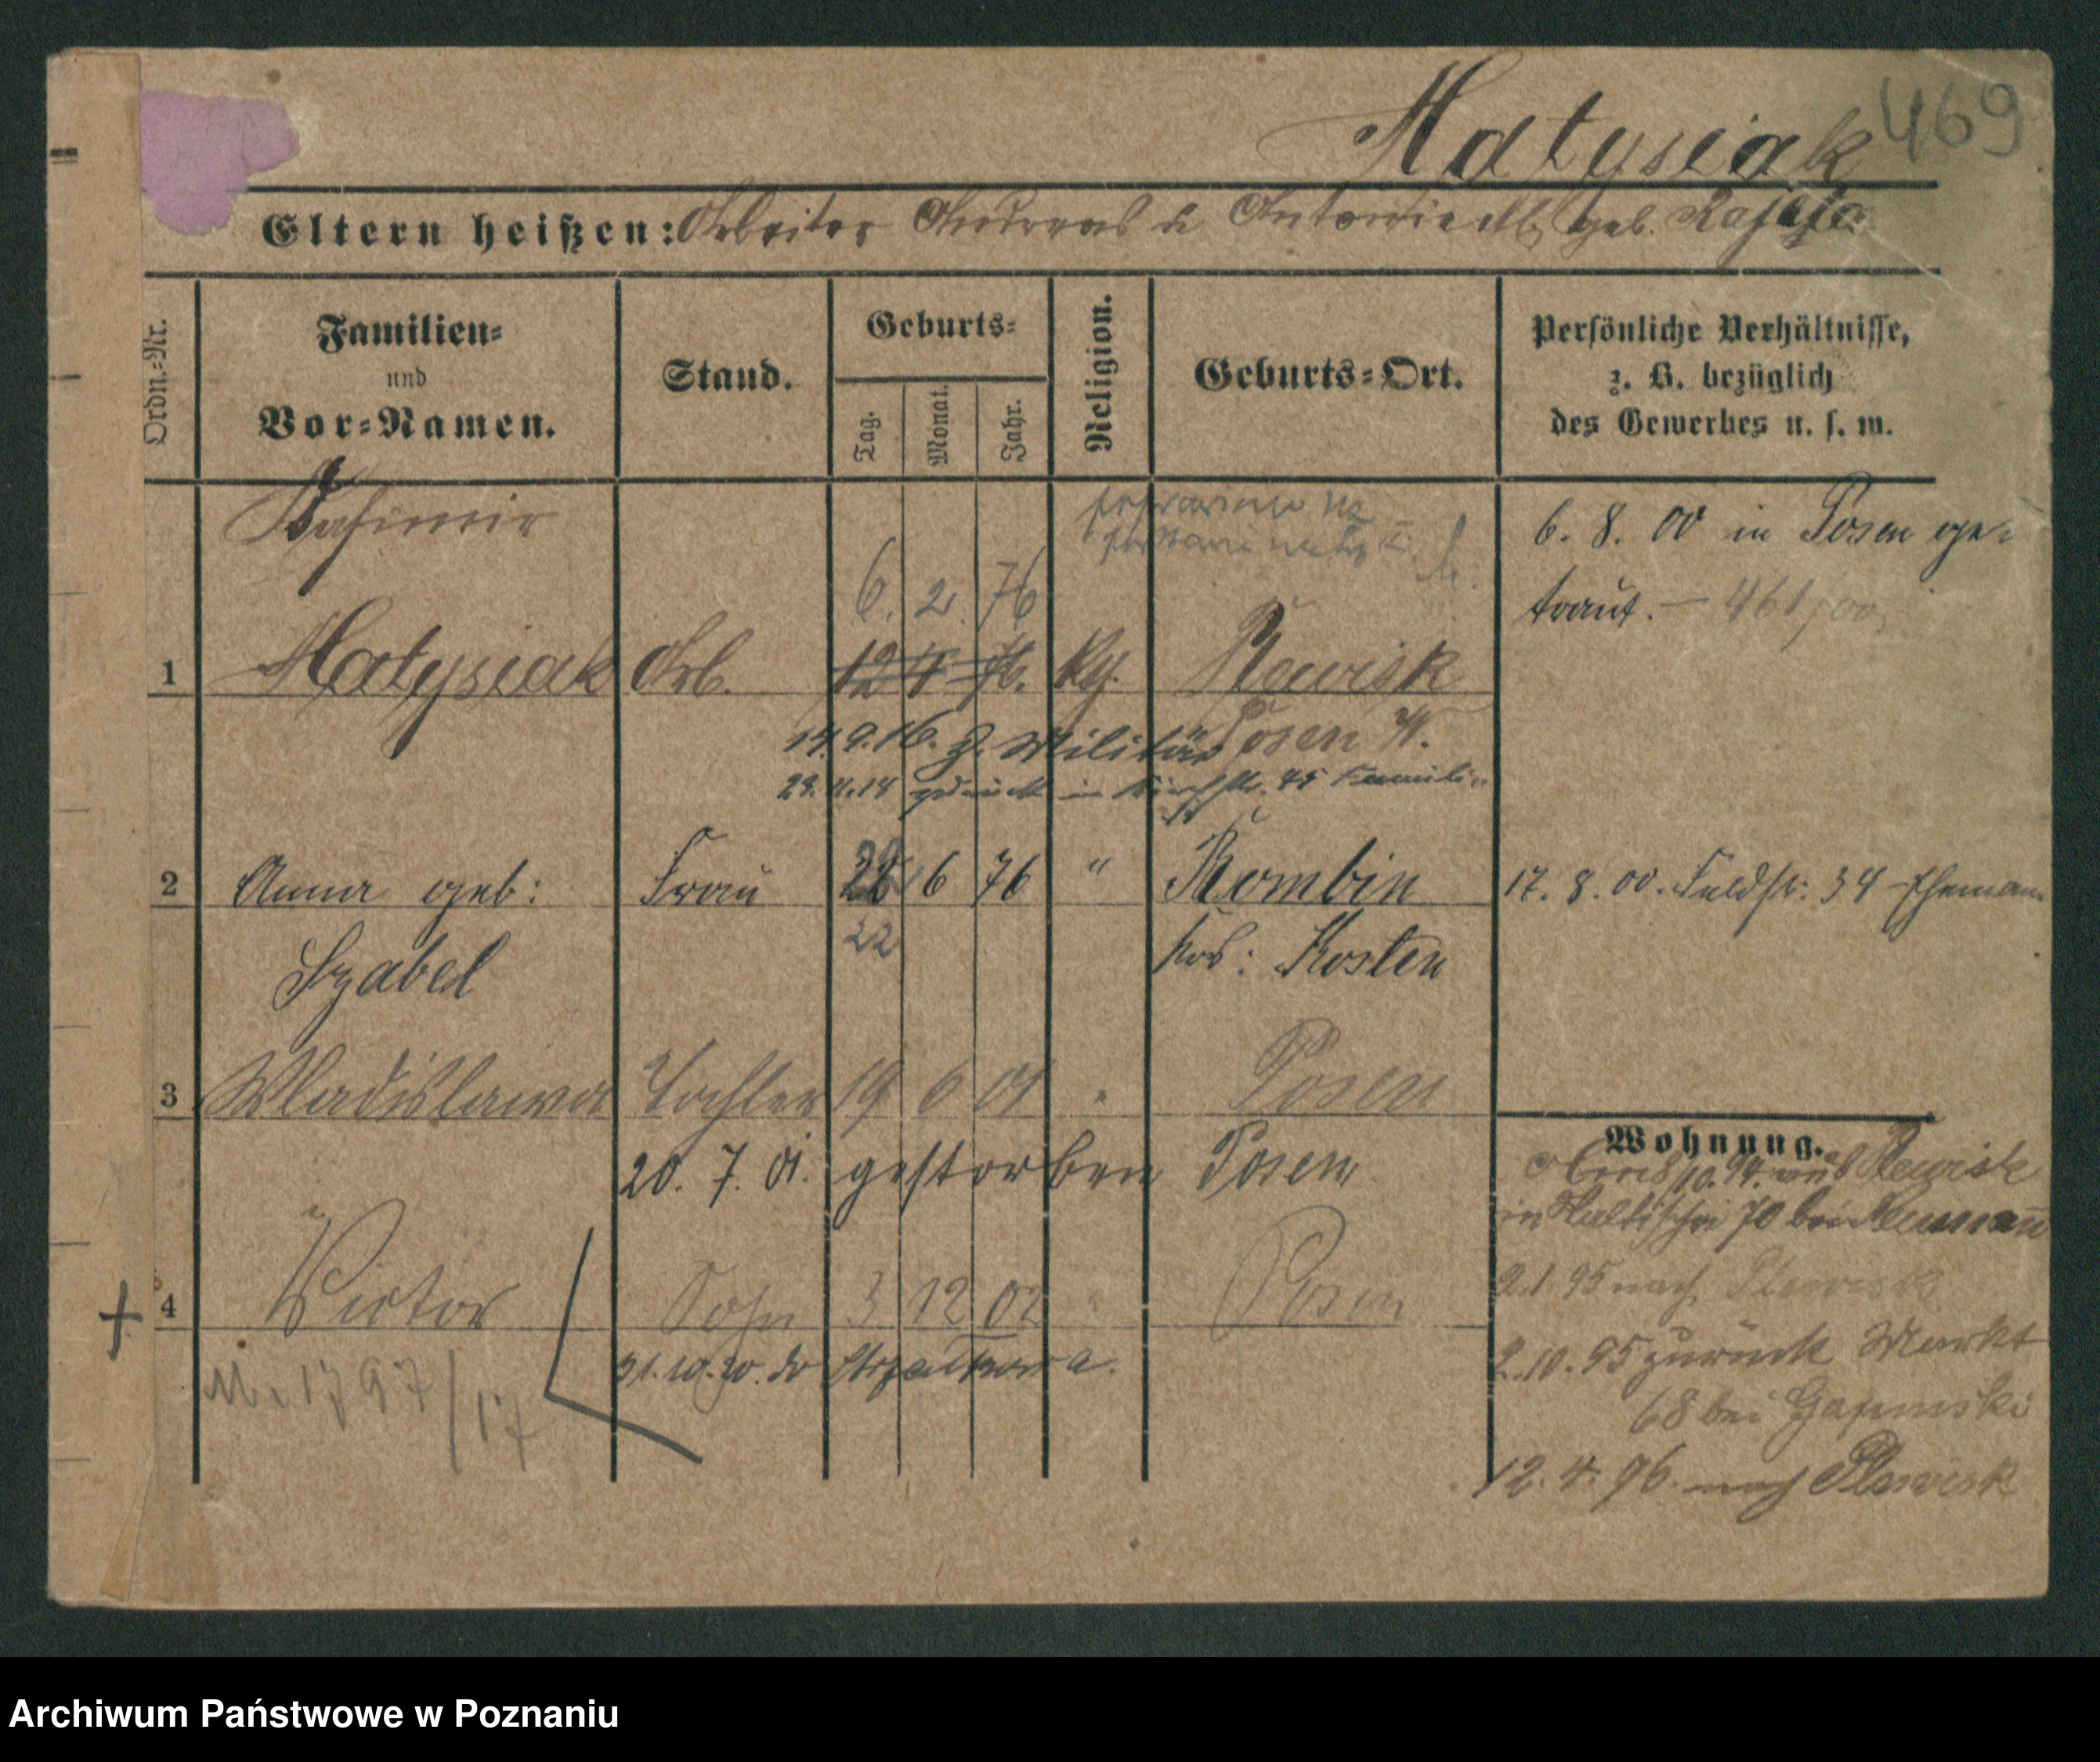 469
Matysiak
Eltern heißen: Arbeiter Andreas u Antonie M. geb.
Ordn.-Nr.
Familien-
und
Vor-Namen.
Stand.
Geburts-
Tag.
Monat.
Jahr.
Religion.
Geburts-Ort.
Persönliche Verhältnisse,
z. B. bezüglich
des Gewerbes u. s. w.
Kasimir
poprawiono na
6. 8. 00 in Posen ge-
traut. — 461/00
6. 2. 76
1 Matysiak Arb. 12 4 76. Kth. Plewisk
Posen W.
14. 9. 16. z. Militär
23. 11. 18 zurück in 45 Familie
2 Anna geb: Frau 28 6 76 " Kombin
17. 8. 00. Feldstr: 34 Ehemann
22
Szabel
Krs: Kosten
3 Wladislawa Tochter 19 6 01 " Posen
20. 7. 01. gestorben Posen
Wohnung.
10. 94. aus Plewisk
in Wallischei 70 bei Neumann
4 Victor Sohn 3 12 02 " Posen
2.1 95 nach Plewisk
31.10.20. do Strzałkowa.
2.10.95 zurück Markt
M. 1797/17
68 bei
12. 4. 96. nach Plewisk
Archiwum Państwowe w Poznaniu